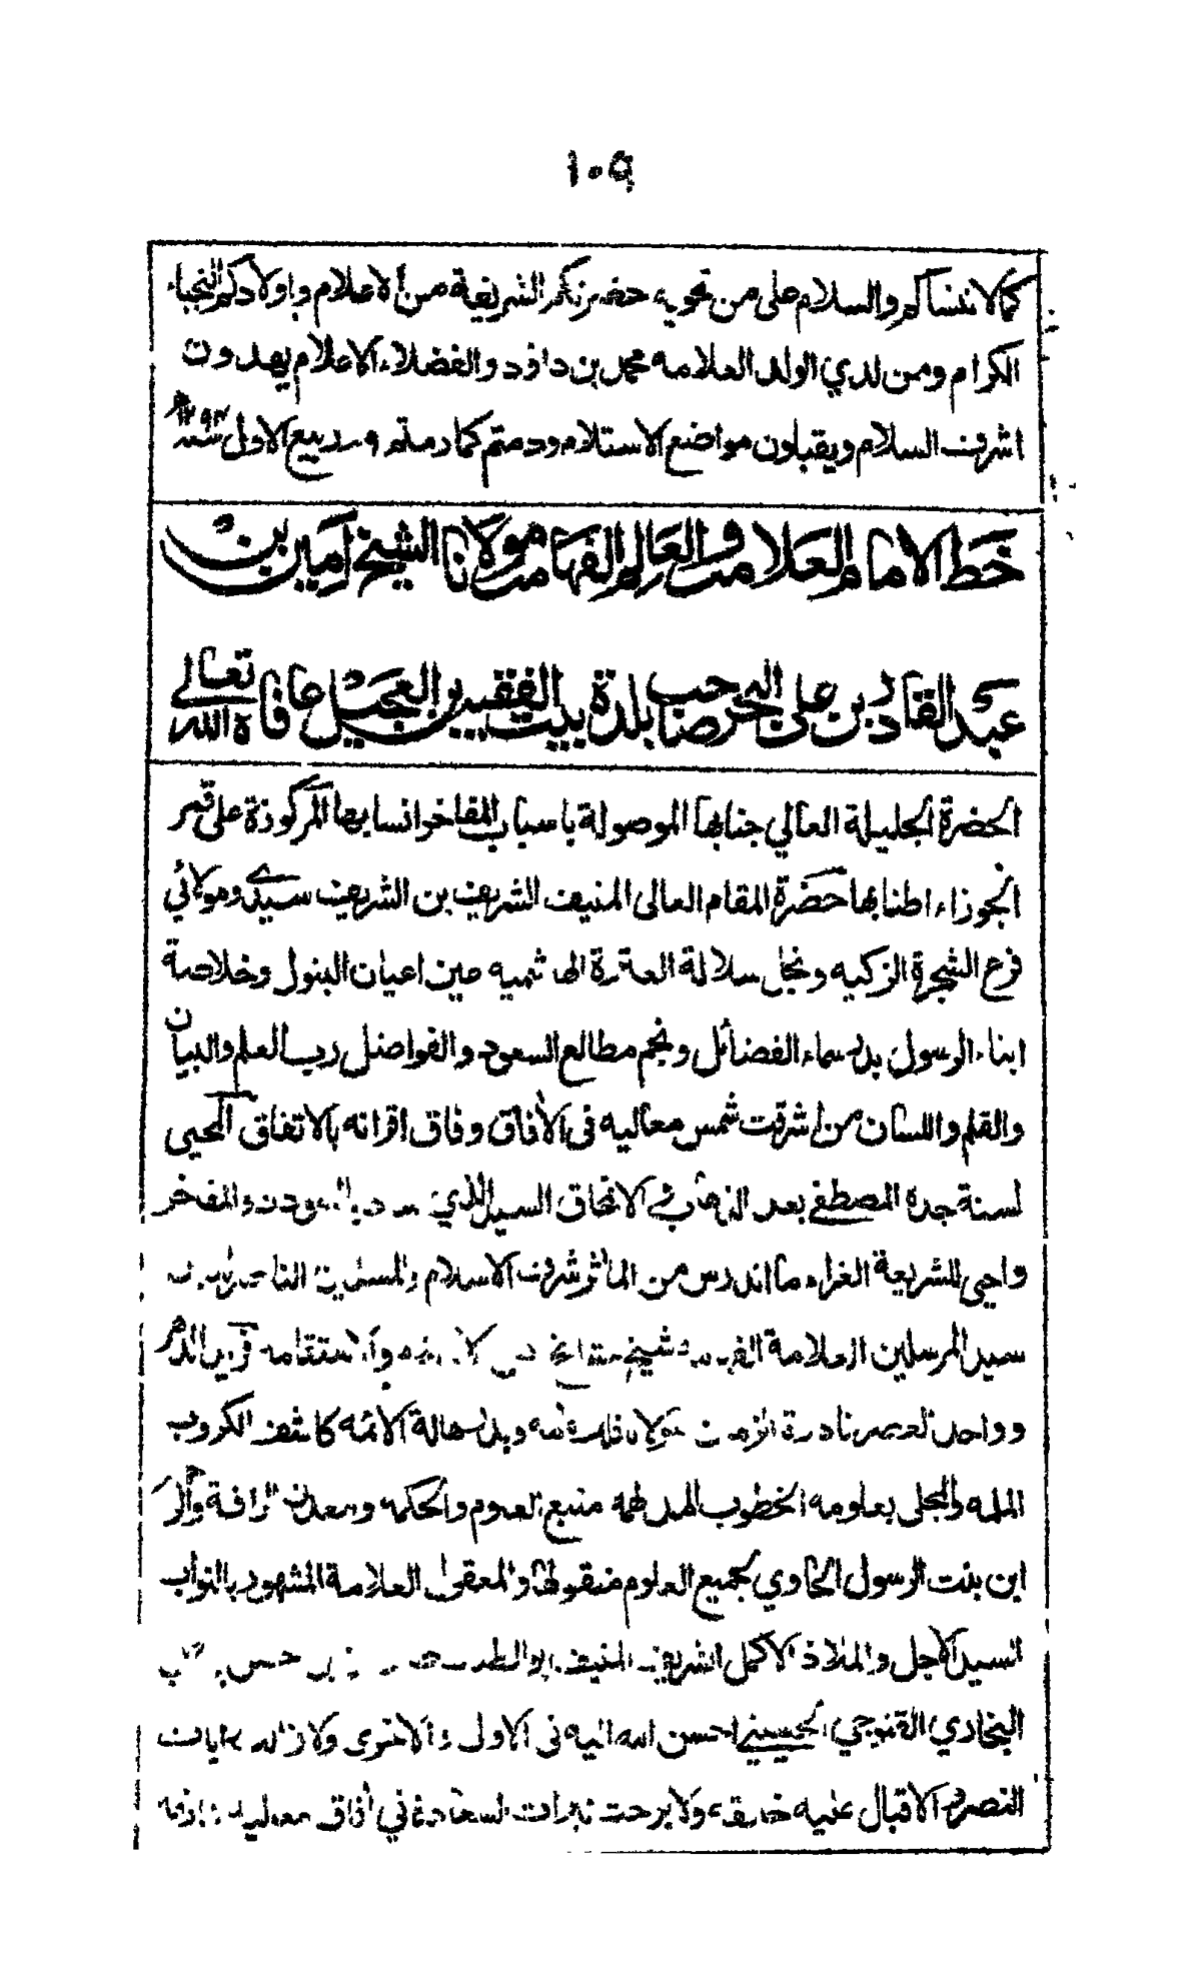 ١٠٩
كما لا ننساكم والسلام على من تحويه حضرتكم الشريفة من الاعلام واولادكم النجباء
الكرام ومن لدي الولد العلامه محمد بن داؤد والفضلاء الاعلام يهدون
اشرف السلام ويقبلون مواضع الاستلام ودمتم كما رمتم ٩ ربيع الاول سنه
خط الامام العلامة والعالم الفهامة مولانا الشيخ امين بن
عبد القادر بن علي البحر صاحب بلدة بيت الفقيه بن العجيل عافاه الله تعالى
الحضرة الجليلة العالي جنابها الموصولة باسباب المفاخر انسابها المركوزة على قمر
الجوزاء اطنابها حضرة المقام العالى المنيف الشريف بن الشريف سيدي ومولائي
فرع الشجرة الزكيه ونجل سلالة العترة الهاشميه عين اعيان البتول وخلاصة
ابناء الرسول بدر سماء الفضائل ونجم مطالع السعود والفواضل رب العلم والبيان
والقلم واللسان من اشرقت شمس معاليه فى الأفاق وفاق اقرانه بالاتفاق المحيى
لسنة جده المصطفى بعد الذهاب والانحاق السيد الذي والمفخر
واحيى للشريعة الغراء ما اندرس من المأثر شرف الاسلام والمسلمين الناصر
سيد المرسلين العلامة شيخ مشايخ والاستقامه فريد الدهر
وواحد العصر نادرة الزمن وبدر هالة الائمه كاشف الكروب
الملمه والمجلى بعلومه الخطوب المدلهمه منبع العلوم والحكمه ومعدن الرافة
ابن بنت الرسول الحاوي لجميع العلوم منقولها والمعقول العلامة المشهور بالنواب
السيد الاجل والملاذ الاكمل الشريف المنيف ابو الطيب حسن
البخاري القنوجي الحسيني احسن الله اليه فى الاولى والاخرى ولا زالت رايات
النصر والاقبال عليه خافقه ولا برحت نيرات السعادة في أفاق معاليه